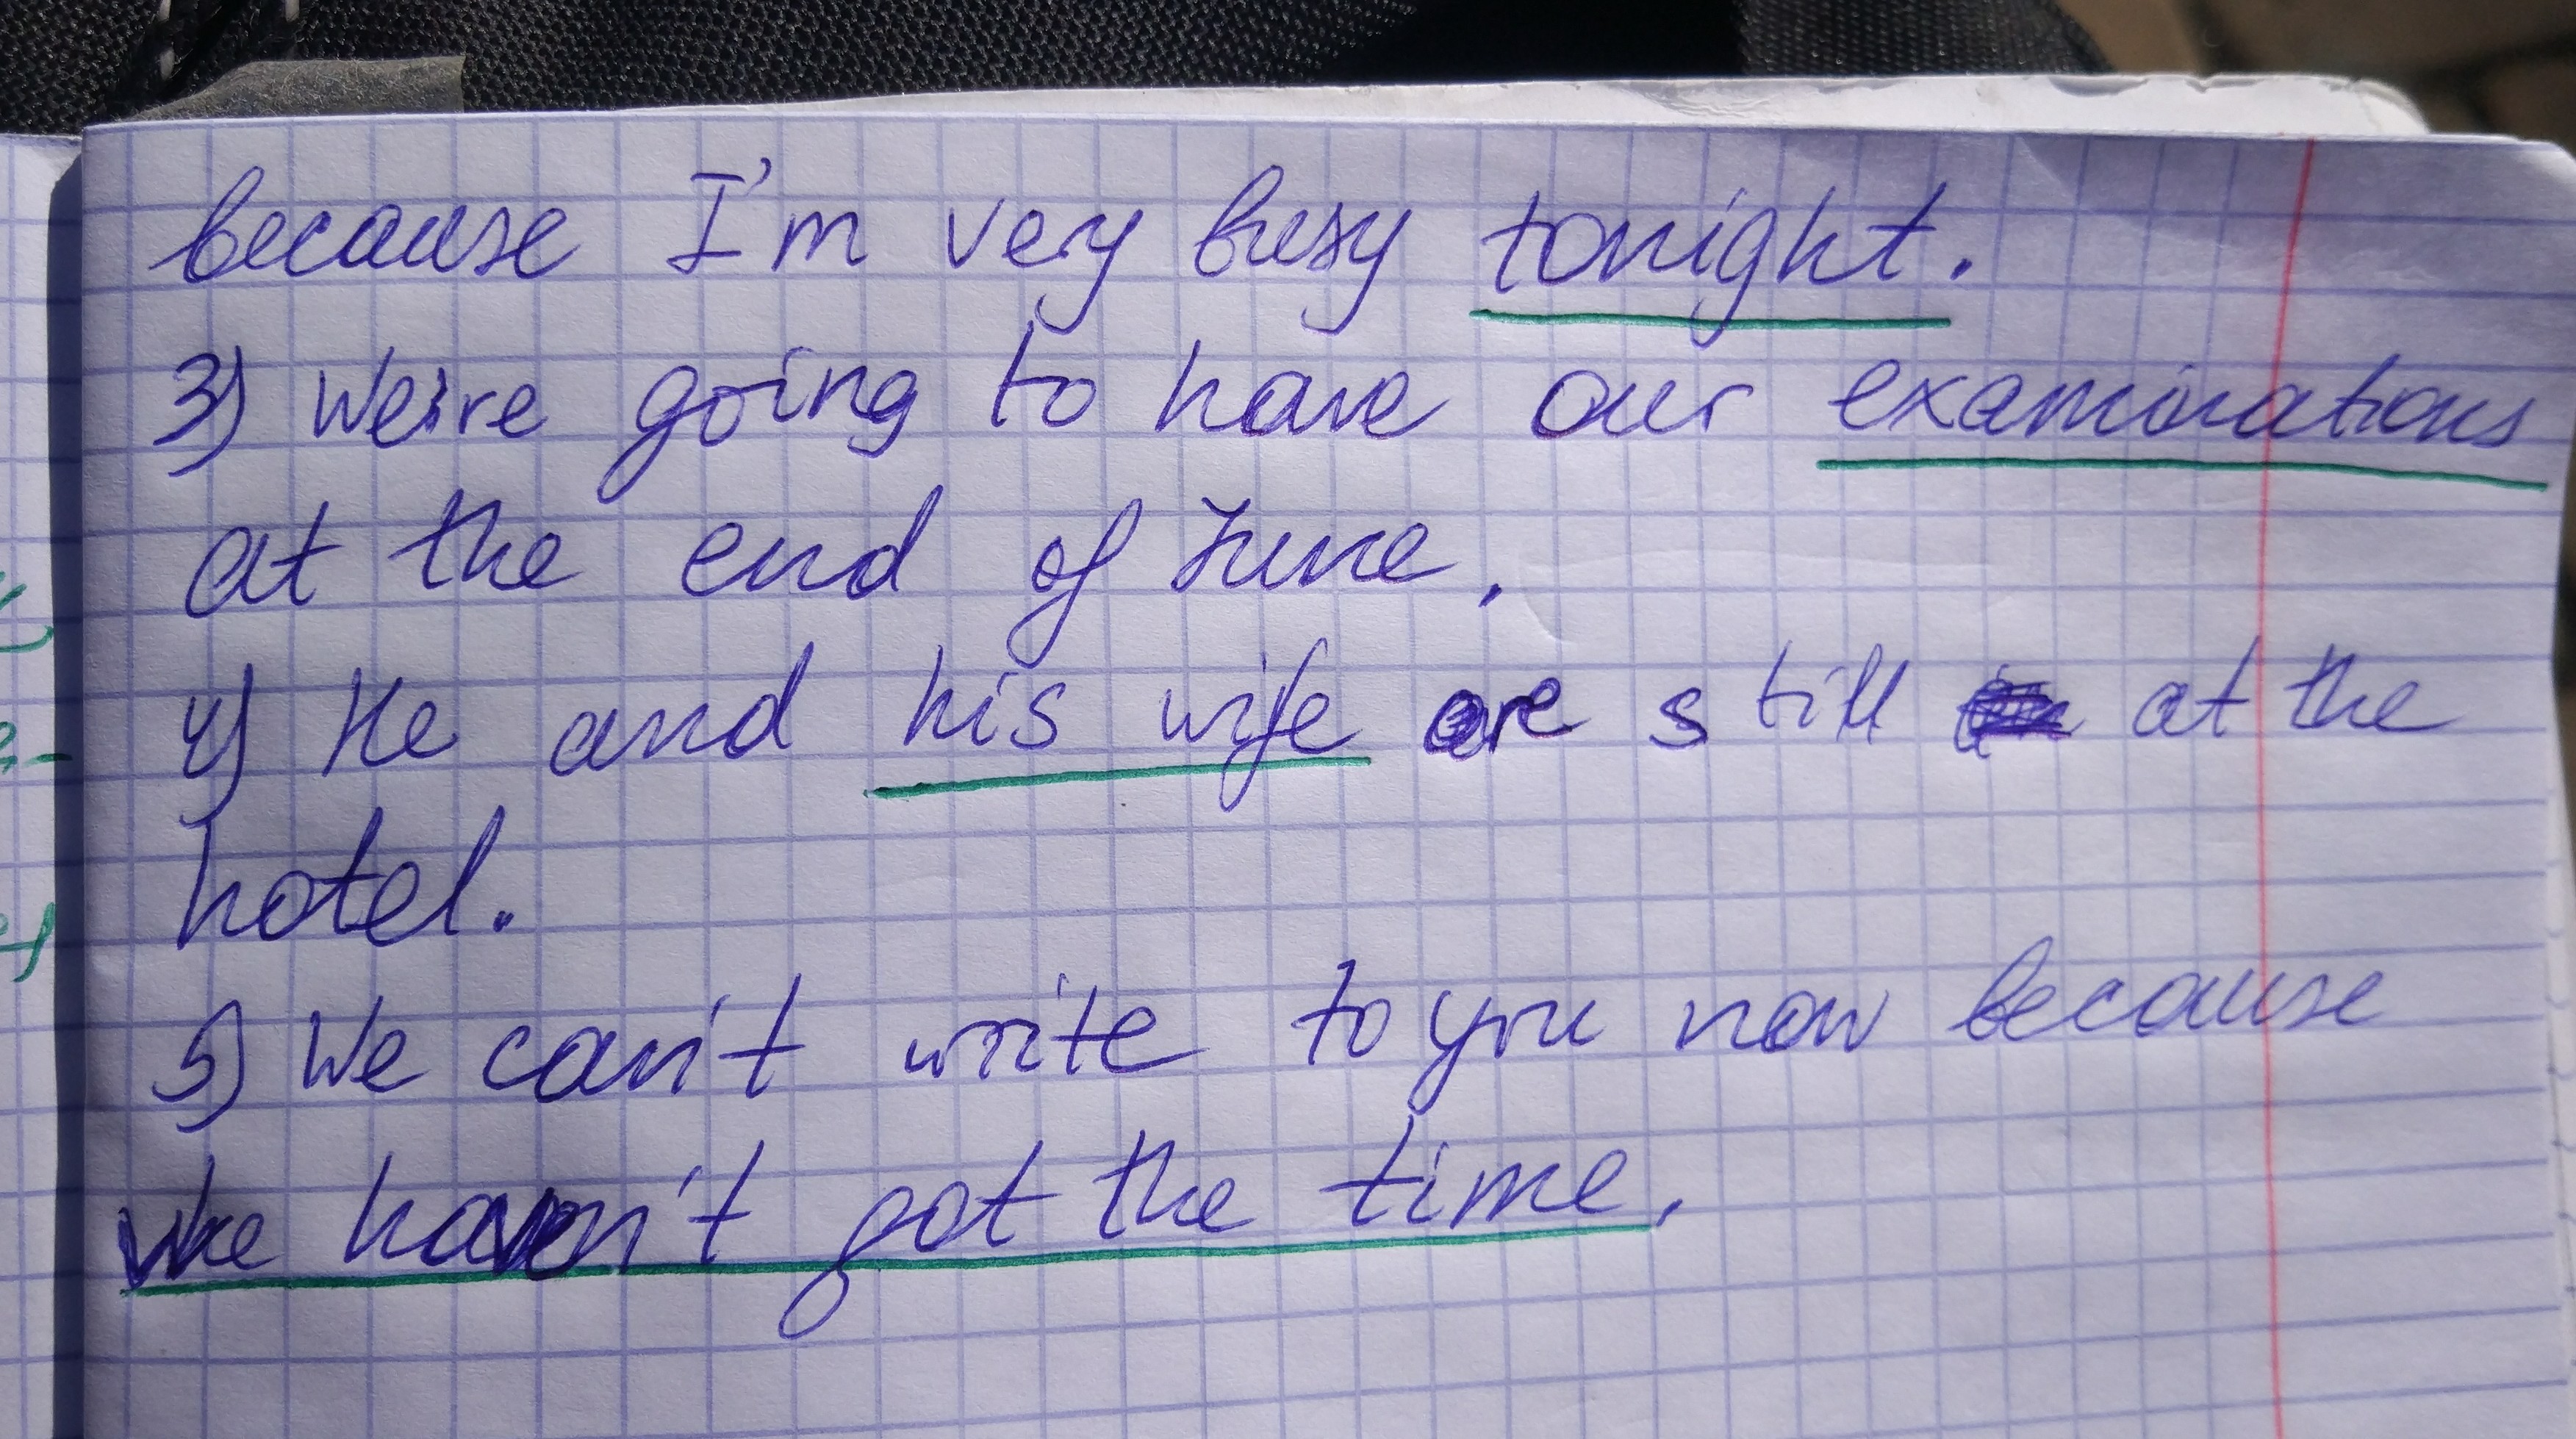 because I'm very busy tonight.
3) We're going to have our examinations
at the end of June.
4) He and his wife are still at the
hotel.
5) We can't write to you now because
we haven't got the time.